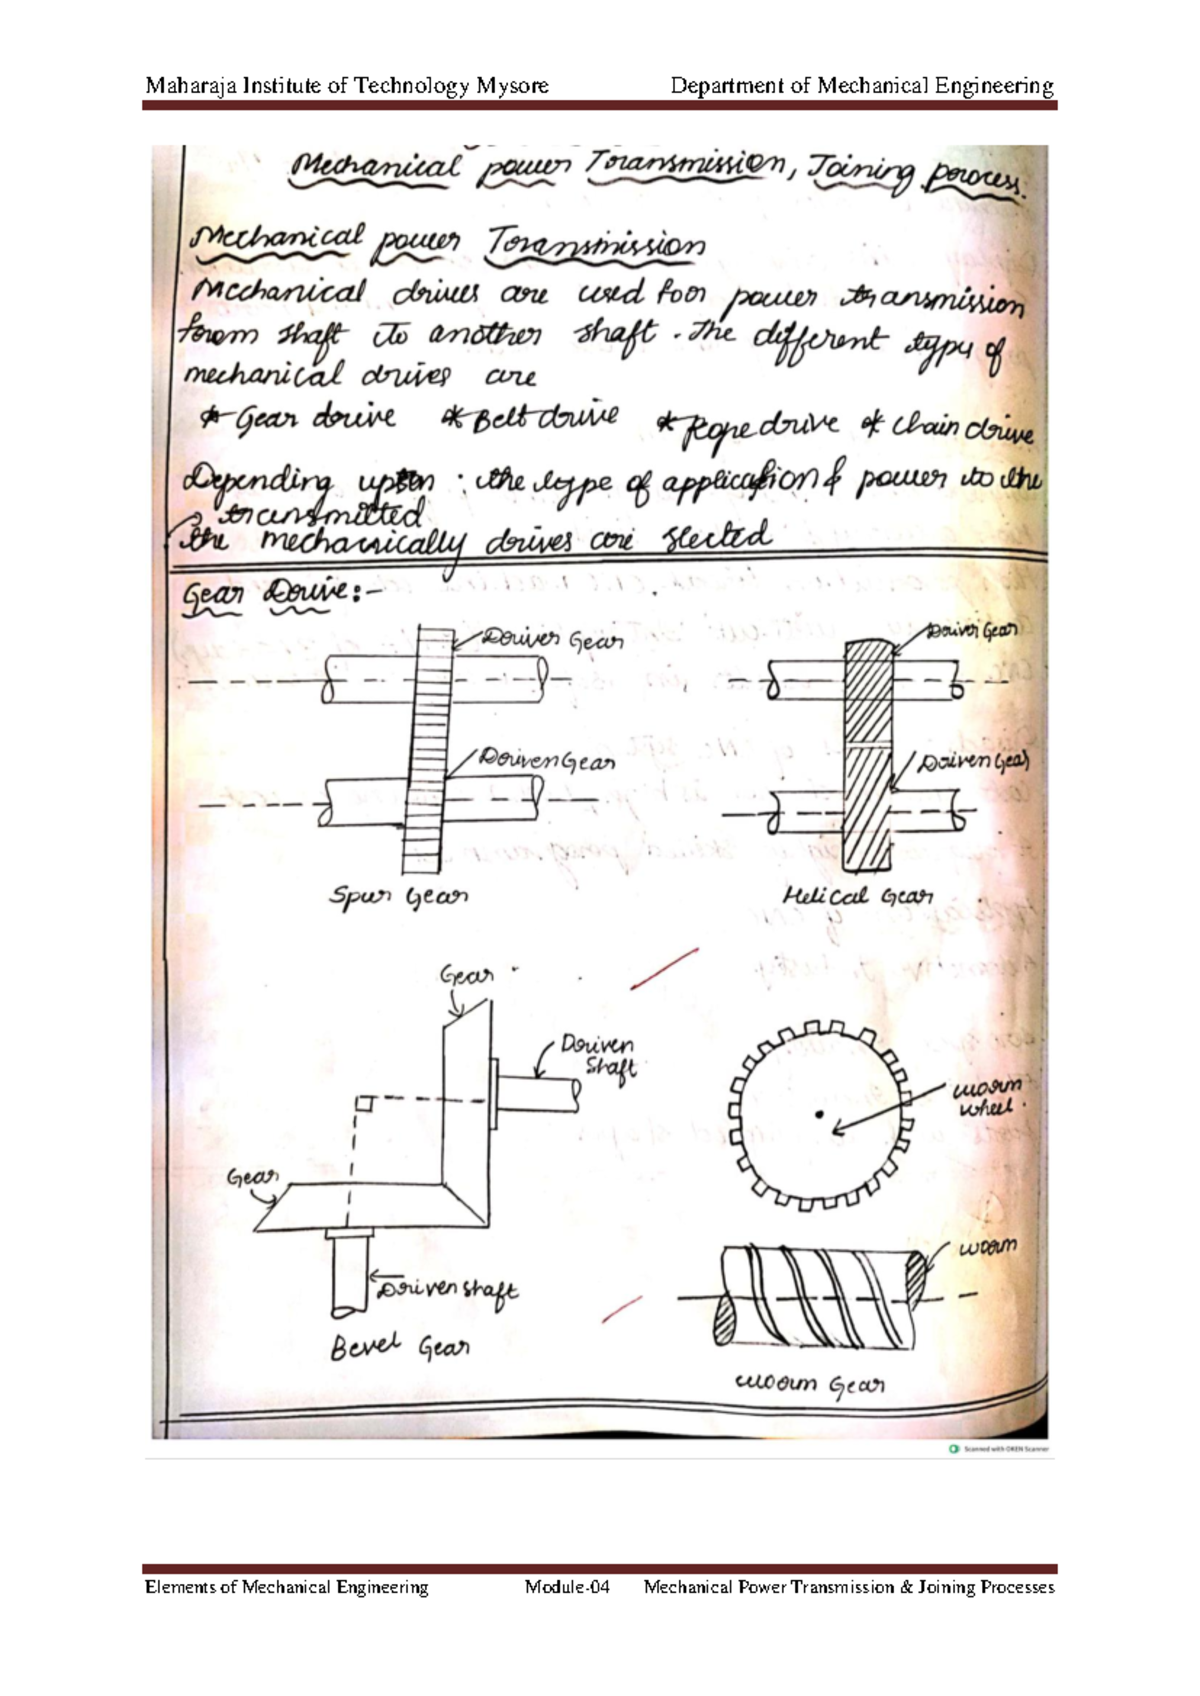 Maharaja Institute of Technology Mysore Department of Mechanical Engineering
Mechanical power Transmission, Joining process.
Mechanical power Transmission
Mechanical drives are used for power transmission
from shaft to another shaft. The different type of
mechanical drives are
* Gear drive * Belt drive * Rope drive * chain drive
Depending upon : the type of application & power to the
transmitted
the mechanically drives are slected
Gear Drive:-
Driver Gear
Driver Gear
Driven Gear
Driven Gear
Spur Gear
Helical Gear
Gear
Driven
Shaft
worm
wheel.
Gear
worm
Driven shaft
Bevel Gear
worm Gear
Scanned with OKEN Scanner
Elements of Mechanical Engineering Module-04 Mechanical Power Transmission & Joining Processes